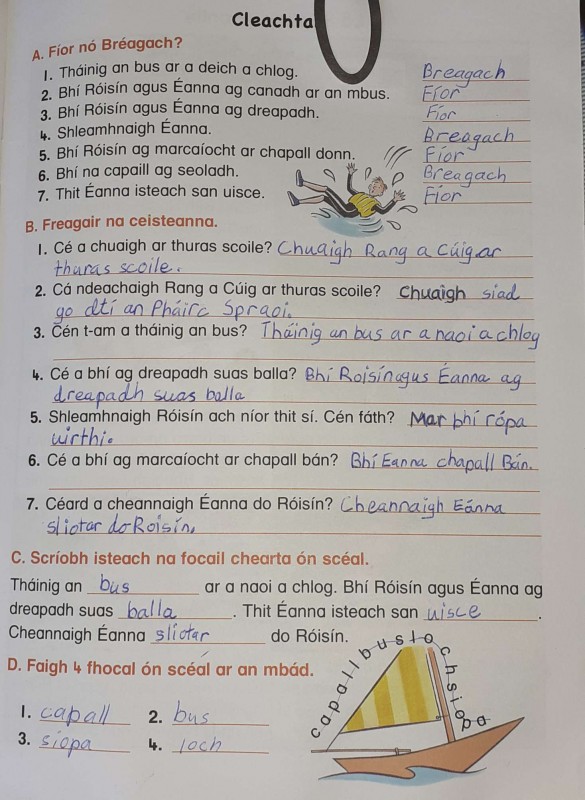 Cleachta
A. Fíor nó Bréagach?
1. Tháinig an bus ar a deich a chlog. Breagach
2. Bhí Róisín agus Éanna ag canadh ar an mbus. Fíor
3. Bhí Róisín agus Éanna ag dreapadh. Fíor
4. Shleamhnaigh Éanna. Breagach
5. Bhí Róisín ag marcaíocht ar chapall donn. Fíor
6. Bhí na capaill ag seoladh. Breagach
7. Thit Éanna isteach san uisce. Fíor
B. Freagair na ceisteanna.
1. Cé a chuaigh ar thuras scoile? Chuaigh Rang a Cúig ar
thuras scoile.
2. Cá ndeachaigh Rang a Cúig ar thuras scoile? Chuaigh siad
go dtí an Pháirc Spraoi.
3. Cén t-am a tháinig an bus? Tháinig an bus ar a naoi a chlog
4. Cé a bhí ag dreapadh suas balla? Bhí Roisín agus Éanna ag
dreapadh suas balla
5. Shleamhnaigh Róisín ach níor thit sí. Cén fáth? Mar bhí rópa
uirthi.
6. Cé a bhí ag marcaíocht ar chapall bán? Bhí Eanna chapall Bán.
7. Céard a cheannaigh Éanna do Róisín? Cheannaigh Eánna
sliotar do Roisín.
C. Scríobh isteach na focail chearta ón scéal.
Tháinig an bus ar a naoi a chlog. Bhí Róisín agus Éanna ag
dreapadh suas balla. Thit Éanna isteach san uisce.
Cheannaigh Éanna sliotar do Róisín.
D. Faigh 4 fhocal ón scéal ar an mbád.
1. capall 2. bus
3. siopa 4. loch
capallbuslochsiopa